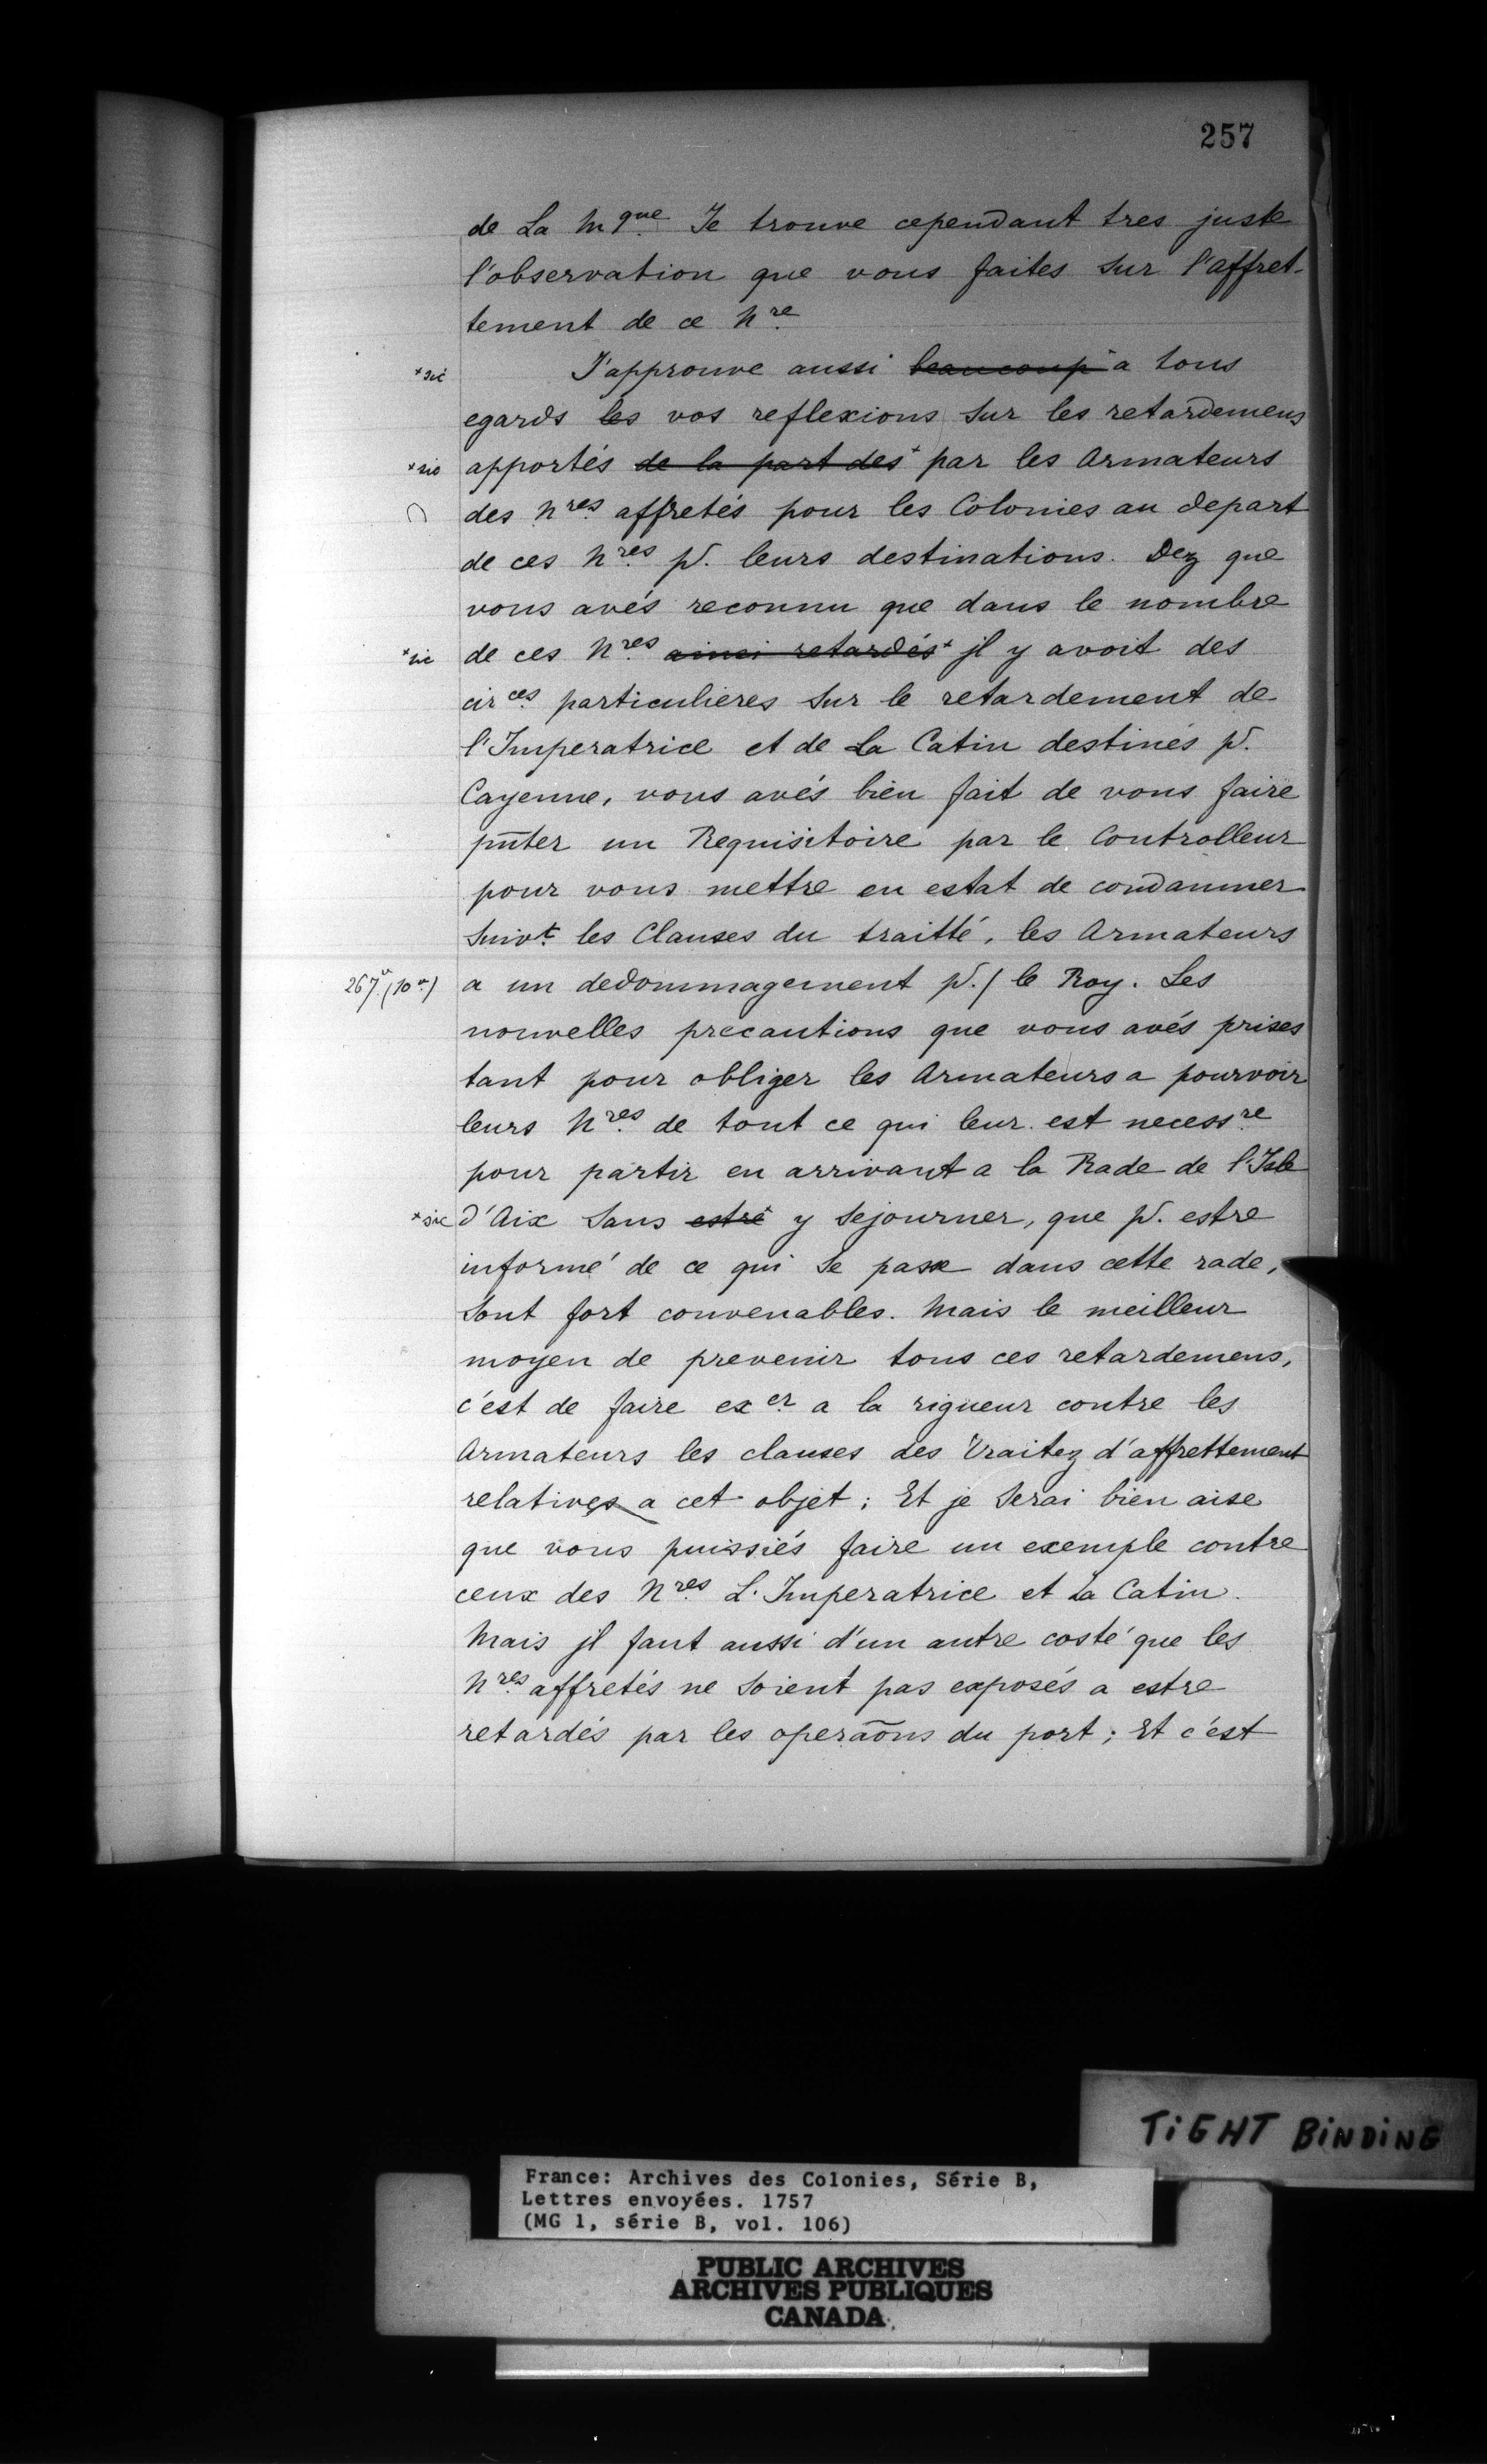 257
de La Mque. Je trouve cependant tres juste
l'observation que vous faites sur l'affret-
tement de ce Nre.
*sic J'approuve aussi beaucoup* a tous
egards les vos reflexions sur les retardemens
*sic apportés de la part des* par les Armateurs
des Nres. affretés pour les Colonies au depart
de ces Nres. pr. leurs destinations. Dez que
vous avés reconnu que dans le nombre
*sic de ces Nres. ainsi retardés* jl y avoit des
circes. particulieres sur le retardement de
l'Imperatrice et de La Catin destinés pr.
Cayenne, vous avés bien fait de vous faire
pñter un Requisitoire par le Controlleur
pour vous mettre en estat de condamner
suivt. les Clauses du traitté, les Armateurs
267.v (10.v) a un dedommagement pr./ le Roy. Les
nouvelles precautions que vous avés prises
tant pour obliger les Armateurs a pourvoir
leurs Nres. de tout ce qui leur est necessre
pour partir en arrivant a la Rade de l'Isle
*sic d'Aix sans estre* y sejourner, que pr. estre
informé de ce qui se passe dans cette rade,
sont fort convenables. Mais le meilleur
moyen de prevenir tous ces retardemens,
c'est de faire exer. a la rigueur contre les
Armateurs les clauses des Traitez d'affrettement
relatives a cet objet; Et je serai bien aise
que vous puissiés faire un exemple contre
ceux des Nres. L'Imperatrice et La Catin.
Mais jl faut aussi d'un autre costé que les
Nres. affretés ne soient pas exposés a estre
retardés par les operaõns du port; Et c'est
TiGHT BiNDiNG
France: Archives des Colonies, Série B,
Lettres envoyées. 1757
(MG 1, série B, vol. 106)
PUBLIC ARCHIVES
ARCHIVES PUBLIQUES
CANADA